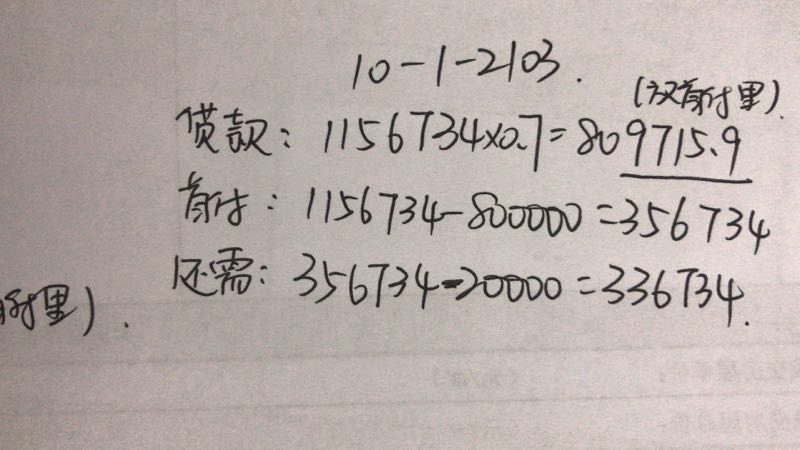 10-1-2103.
(放首付里).
贷款: 1156734×0.7=809715.9
首付: 1156734-800000=356734
还需: 356734-20000=336734.
付里).